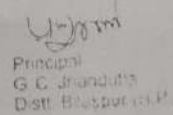 Principal
G C Jhandutta
Distt. Bilaspur (H.P